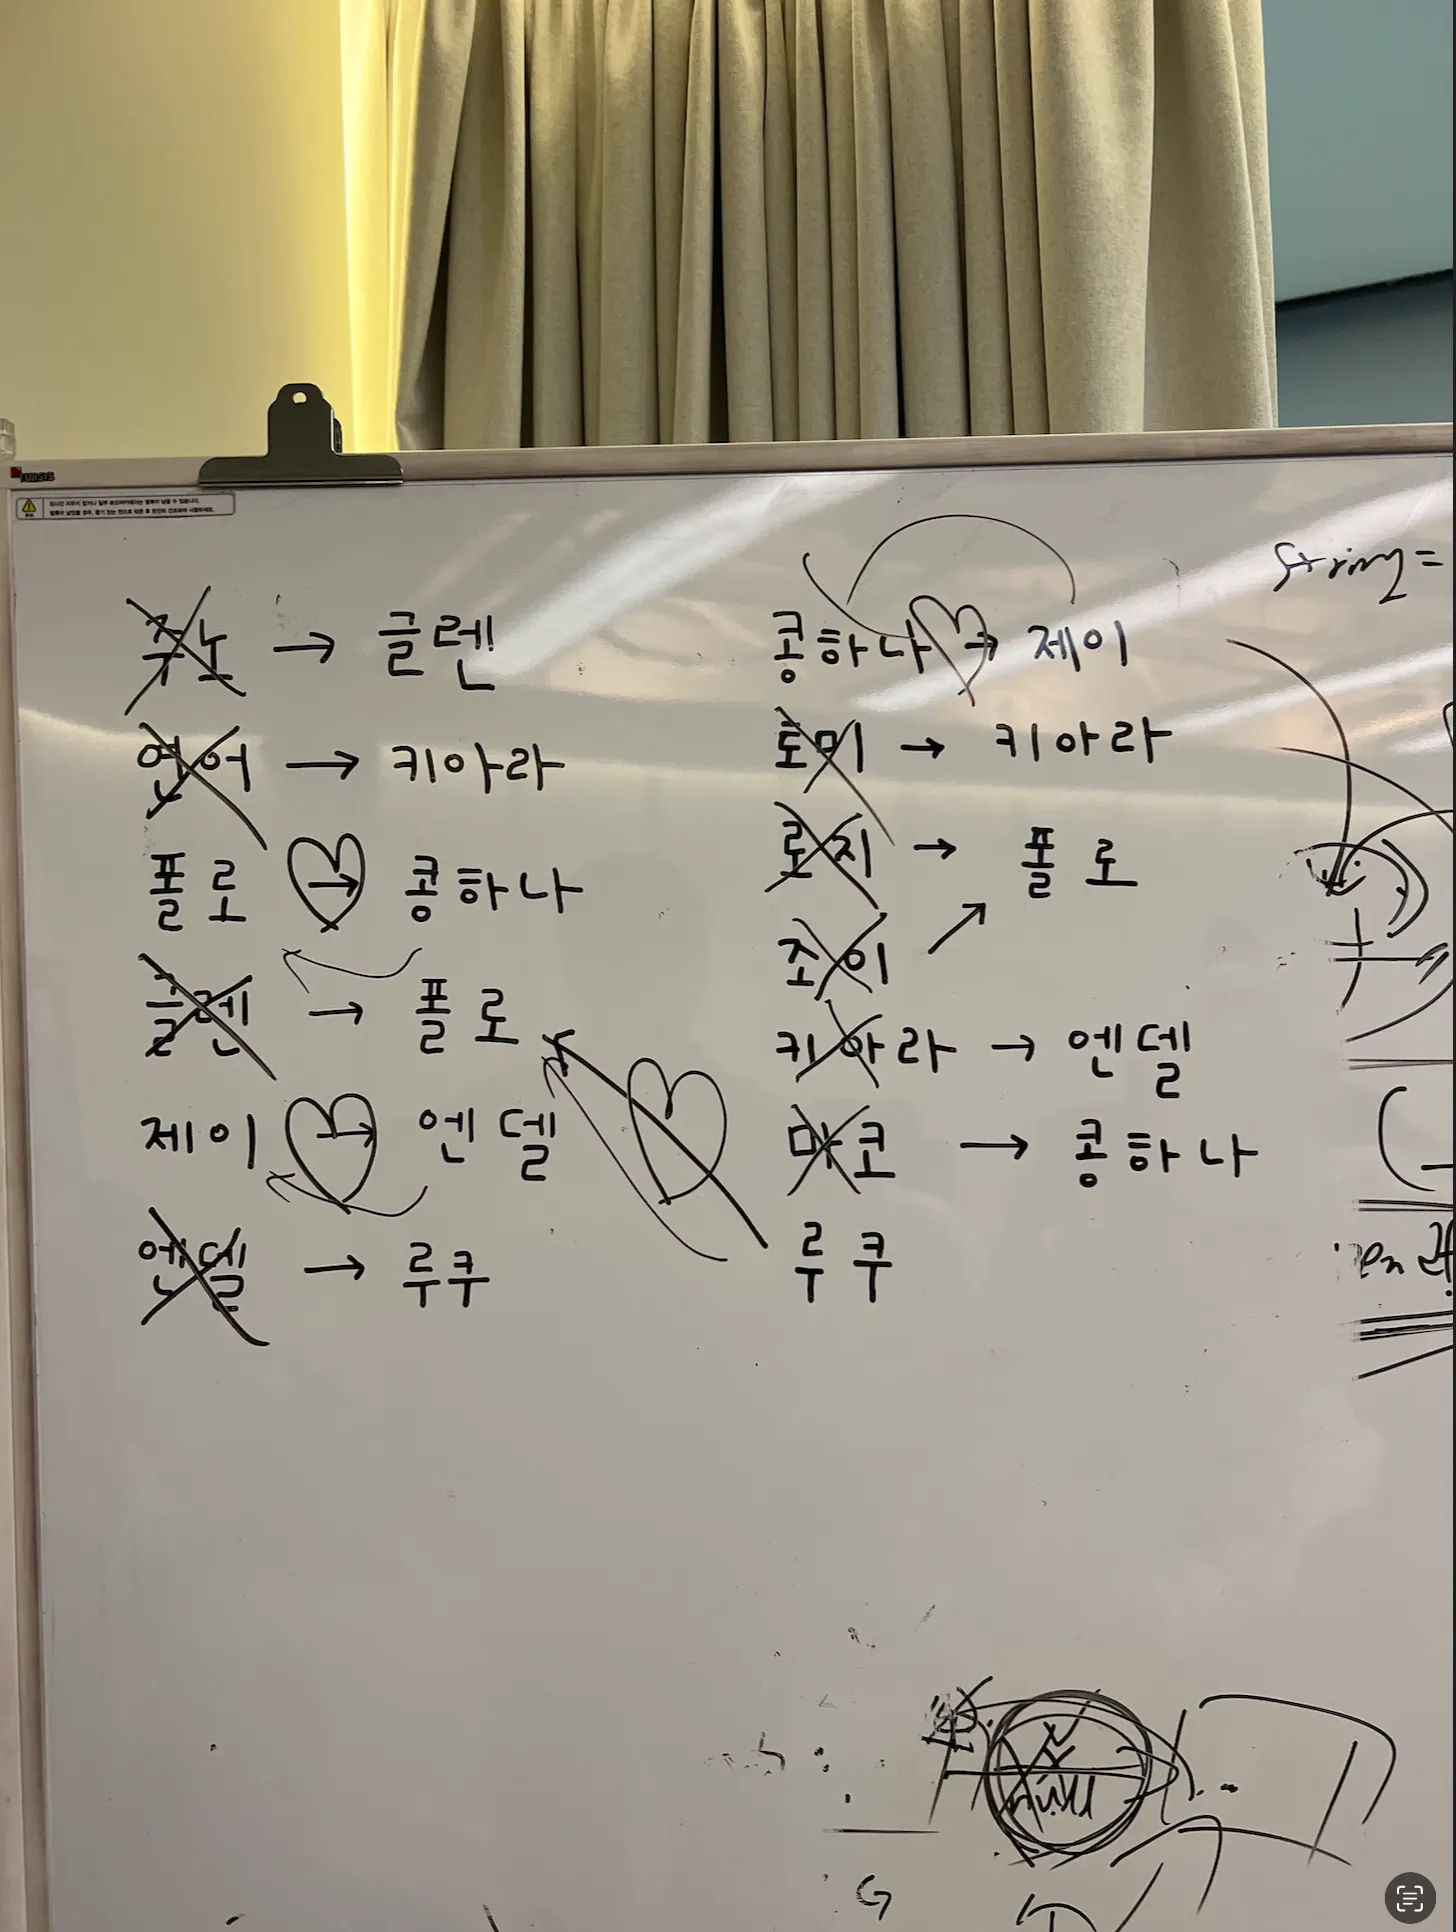 FURSYS
주노 → 글렌
연어 → 키아라
플로 → 콩하나
글렌 → 플로
제이 → 엔델
엔델 → 루쿠
콩하나 → 제이
토미 → 키아라
로지 → 플로
조이
키아라 → 엔델
마코 → 콩하나
루쿠
String =
null
G